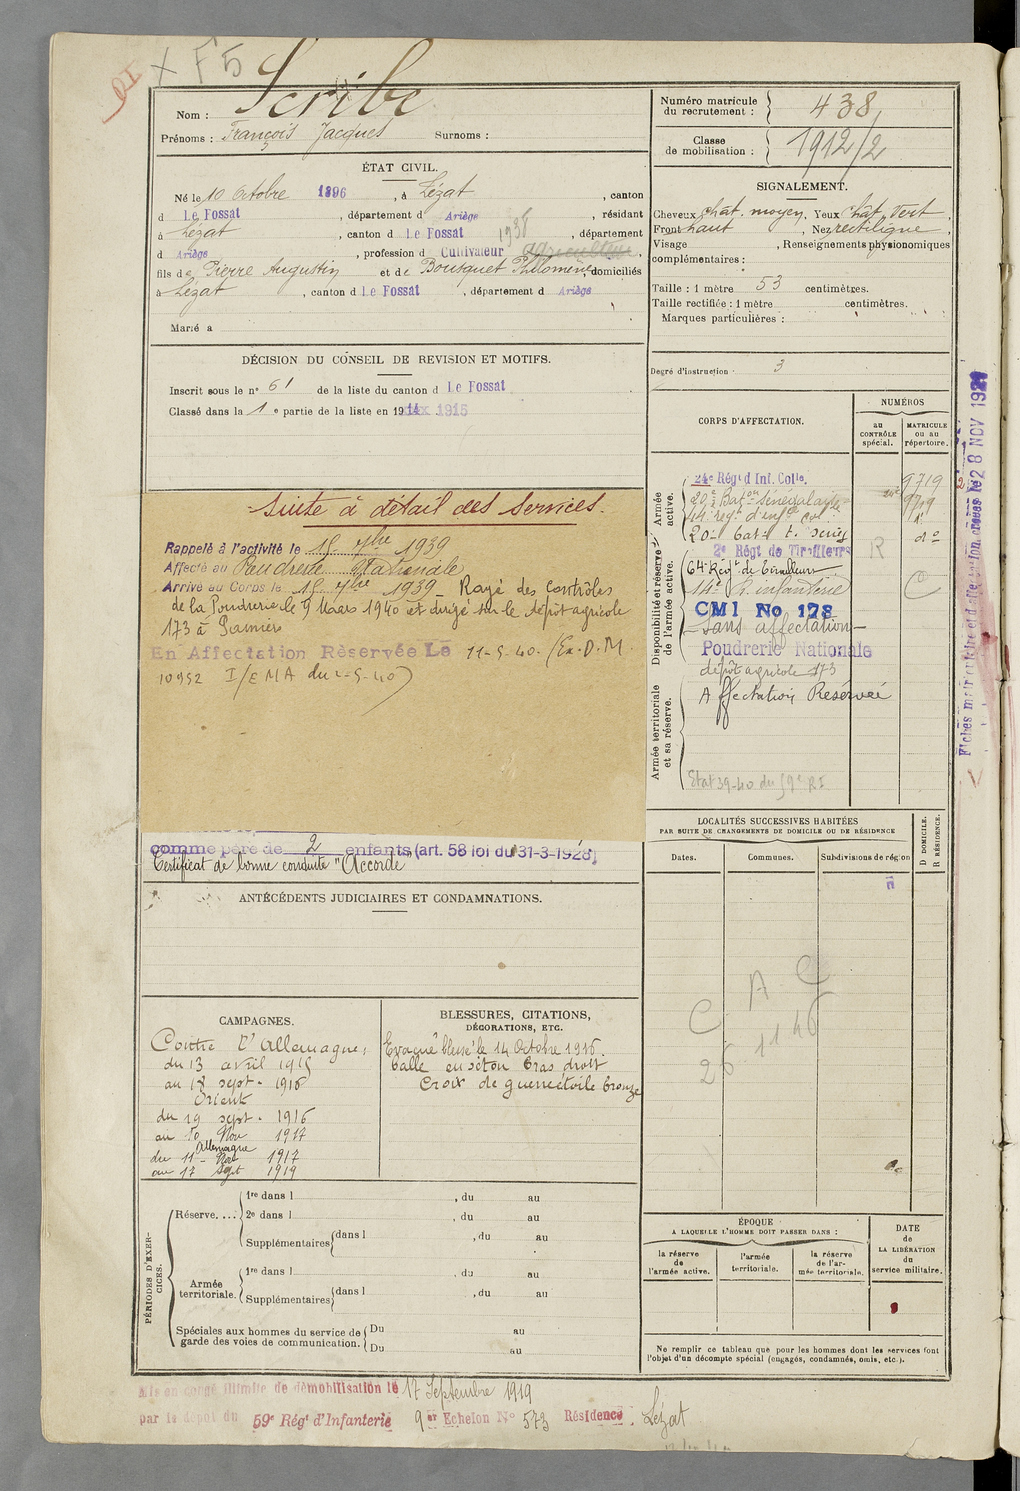 X F5
Nom : Scribe
Prénoms : François Jacques Surnoms :
ÉTAT CIVIL.
Né le 10 Octobre 1896, à Lézat, canton
d Le Fossat, département d Ariège, résidant
à Lézat, canton d Le Fossat, département
d Ariège, profession d Cultivateur
fils de Pierre Augustin et de Bousquet Philomène, domiciliés
à Lézat, canton d Le Fossat, département d Ariège
Marié à
DÉCISION DU CONSEIL DE REVISION ET MOTIFS.
Inscrit sous le n° 61 de la liste du canton d Le Fossat
Classé dans la 1e partie de la liste en 1915
Suite à détail des Services.
Rappelé à l'activité le 15 7bre 1939
Affecté au Poudrerie Nationale
Arrivé au Corps le 15 7bre 1939 - Rayé des contrôles
de la Poudrerie le 9 Mars 1940 et dirigé sur le dépôt agricole
173 à Pamiers
En Affectation Réservée Le 11-5-40. (Ex. D.M.
10952 I/EMA du 2-5-40)
comme père de 2 enfants (art. 58 loi du 31-3-1928)
Certificat de bonne conduite "Accordé"
ANTÉCÉDENTS JUDICIAIRES ET CONDAMNATIONS.
CAMPAGNES.
Contre l'Allemagne:
du 13 avril 1915
au 18 sept. 1916
Orient
du 19 sept. 1916
au 10 Nov 1917
Allemagne
du 11 Nov 1917
au 17 Sept 1919
BLESSURES, CITATIONS,
DÉCORATIONS, ETC.
Evacué blessé le 14 Octobre 1916.
balle en séton bras droit
Croix de guerre étoile bronze
PÉRIODES D'EXERCICES.
Réserve....
1re dans l , du au
2e dans l , du au
Supplémentaires dans l , du au
Armée territoriale.
1re dans l , du au
Supplémentaires dans l , du au
Spéciales aux hommes du service de garde des voies de communication.
Du au
Du au
Numéro matricule du recrutement : 438
Classe de mobilisation : 1912/2
SIGNALEMENT.
Cheveux chât. moyen, Yeux chât. vert,
Front haut, Nez rectiligne,
Visage , Renseignements physionomiques
complémentaires :
Taille : 1 mètre 53 centimètres.
Taille rectifiée : 1 mètre centimètres.
Marques particulières :
Degré d'instruction : 3
CORPS D'AFFECTATION.
NUMÉROS
au CONTRÔLE spécial.
MATRICULE ou au répertoire.
Armée active.
24e Rég d Inf. Colle. 9719
20e Baton Sénégalais
44e régt d'infie col
20e bat t. Séné d°
Disponibilité et réserve de l'armée active.
2e Régt de Tirailleurs
64e Régt de Tirailleurs
14e R. infanterie
CMI No 178
Sans affectation
Poudrerie Nationale
dépôt agricole 173
Affectation Réservée
Armée territoriale et sa réserve.
Etat 39-40 du 59e RI
Fiches matriculaire et d'affectation créées le 28 NOV 1921
LOCALITÉS SUCCESSIVES HABITÉES
PAR SUITE DE CHANGEMENTS DE DOMICILE OU DE RÉSIDENCE
D DOMICILE. R RÉSIDENCE.
Dates. Communes. Subdivisions de région
C A C
26 11 46
ÉPOQUE
A LAQUELLE L'HOMME DOIT PASSER DANS :
la réserve de l'armée active.
l'armée territoriale.
la réserve de l'armée territoriale.
DATE
de
LA LIBÉRATION
du
service militaire.
Ne remplir ce tableau que pour les hommes dont les services font
l'objet d'un décompte spécial (engagés, condamnés, omis, etc.).
Mis en congé illimité de démobilisation le 17 Septembre 1919
par le dépôt du 59e Régt d'Infanterie 9er Echelon N° 573 Résidence : Lézat